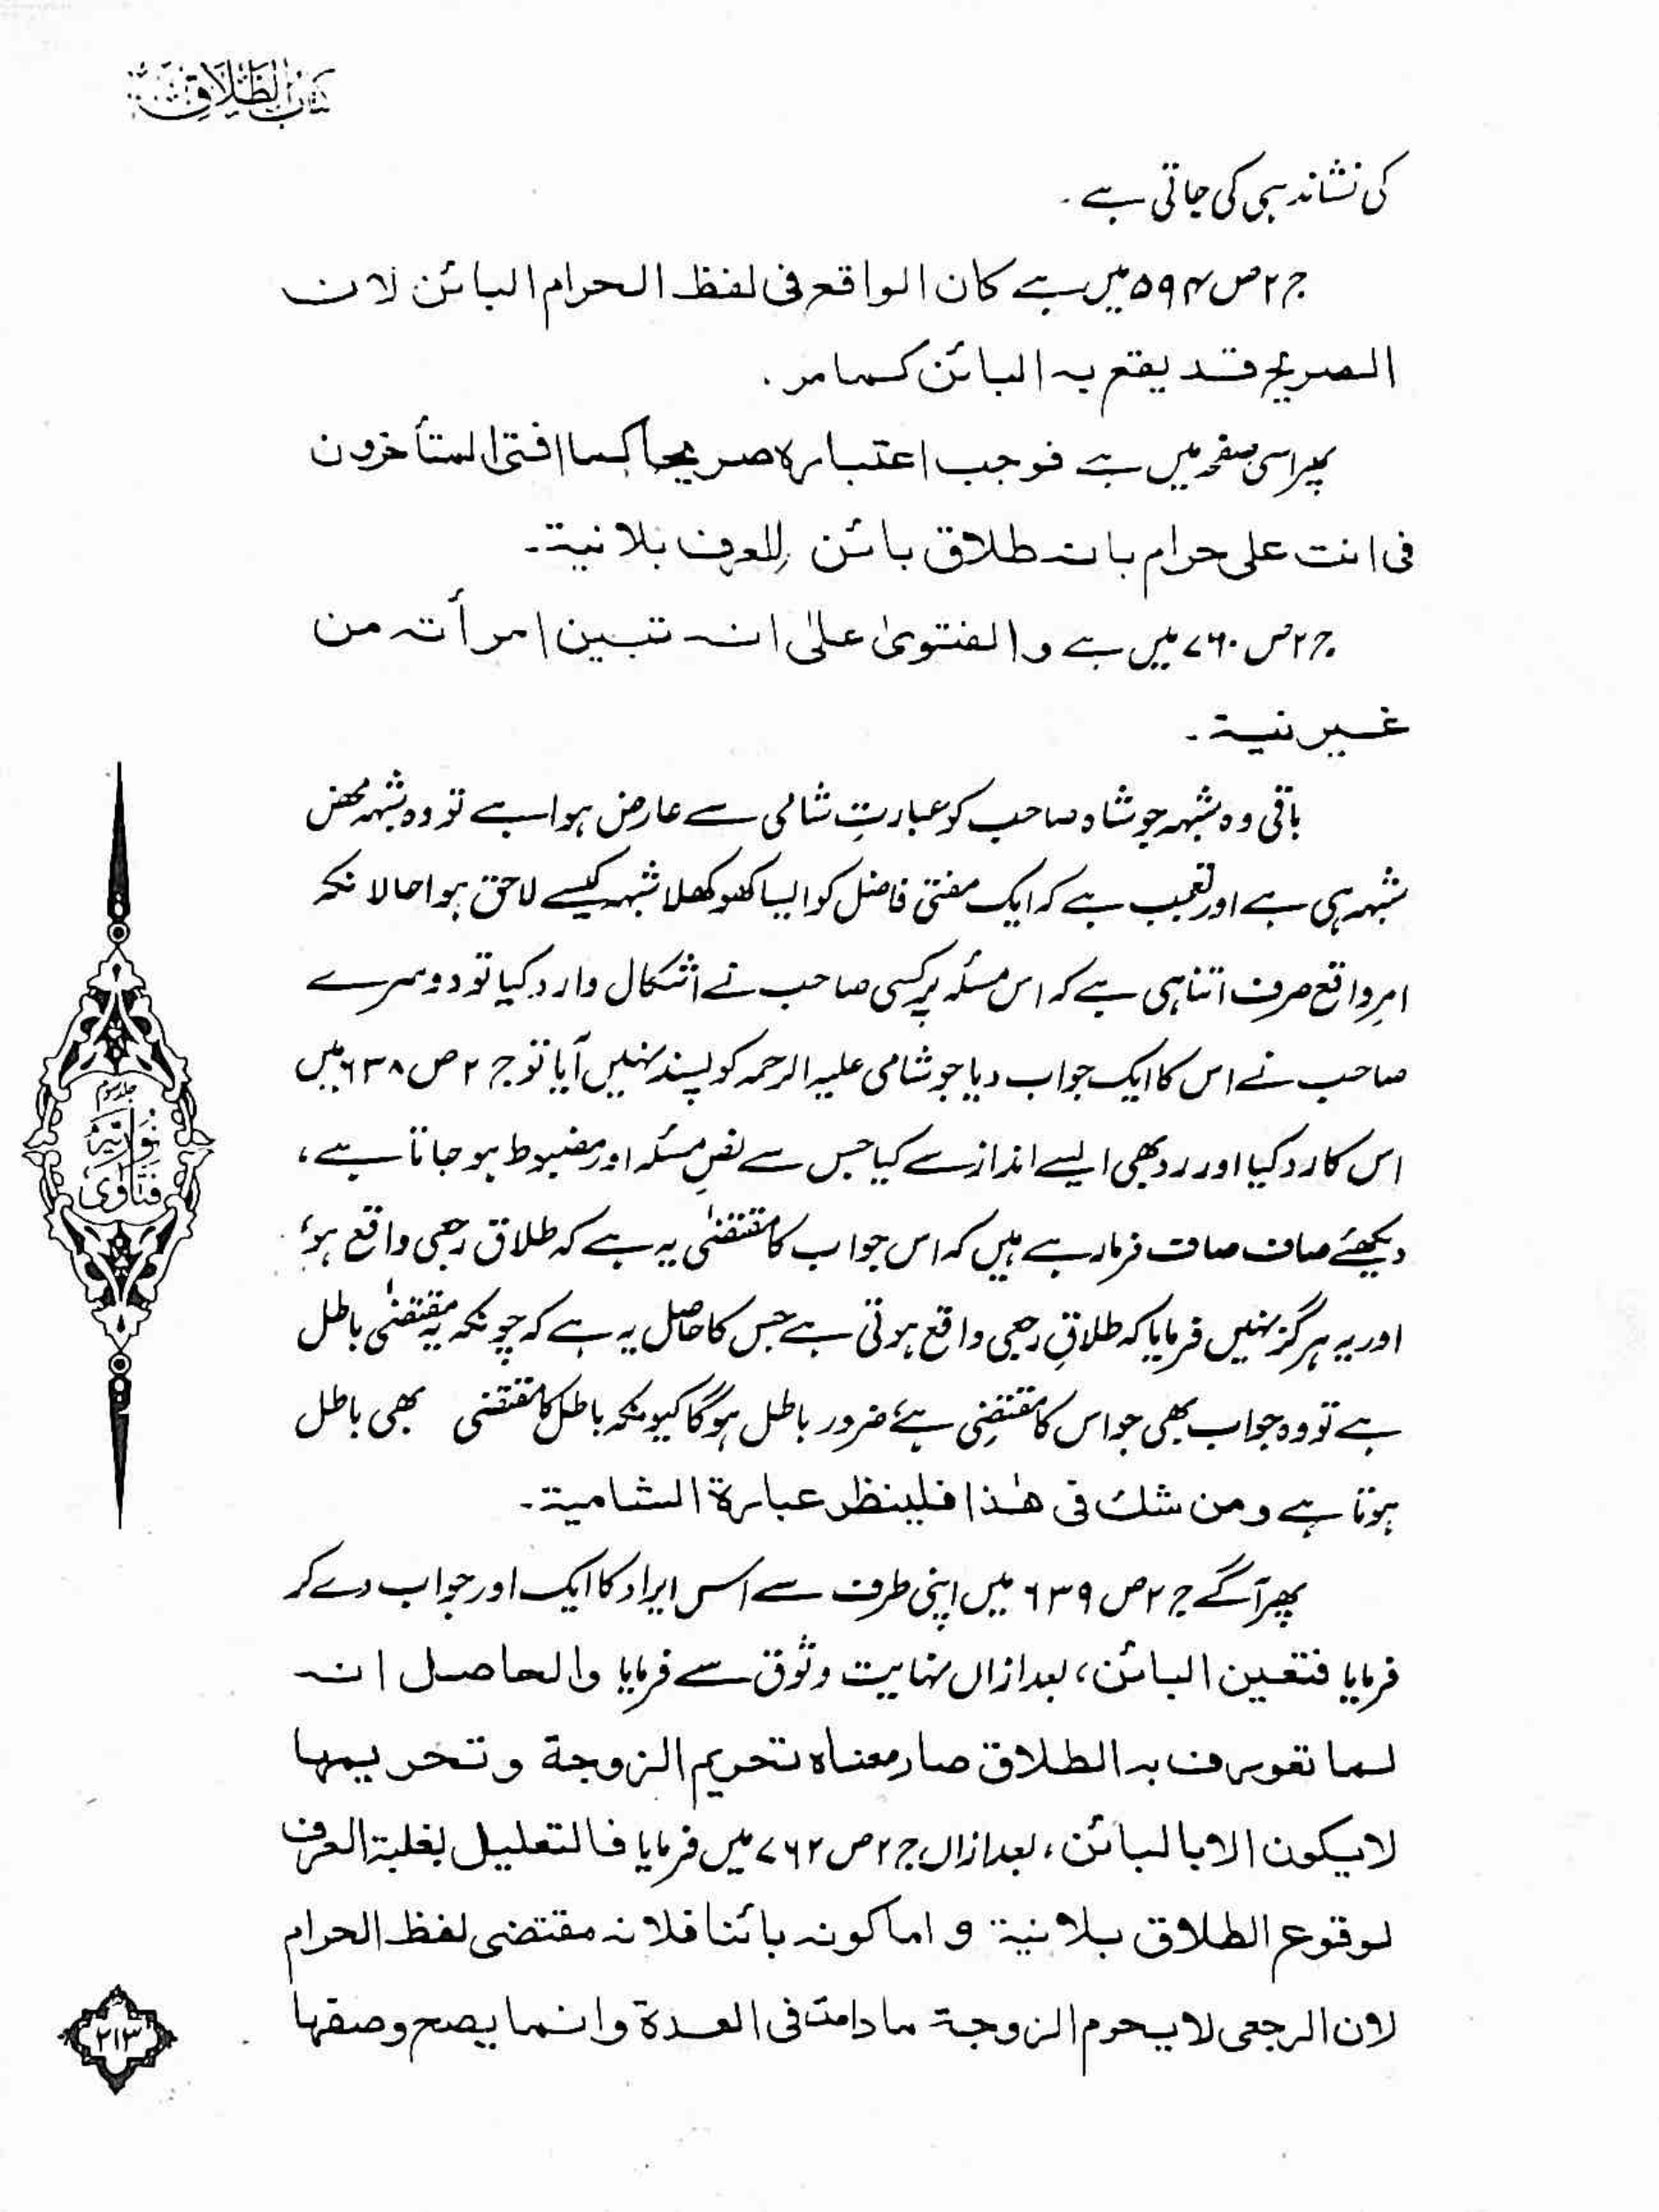 کتاب الطلاق
کی نشاندہی کی جاتی ہے۔
ج ۲ ص ۵۹۴ میں ہے کان الواقع فی لفظ الحرام البائن لان
الصریح قد یقع بہ البائن کما مر۔
پھر اسی صفحہ میں ہے فوجب اعتبارہ صریحا کما افتی المتأخرون
فی انت علی حرام بانہ طلاق بائن للعرف بلا نیۃ۔
ج ۲ ص ۷۶۰ میں ہے و الفتویٰ علیٰ انہ تبین امرأتہ من
غیر نیۃ۔
باقی وہ شبہہ جو شاہ صاحب کو عبارتِ شامی سے عارض ہوا ہے تو وہ شبہہ محض
شبہہ ہی ہے اور تعجب ہے کہ ایک مفتی فاضل کو ایسا کھوکھلا شبہہ کیسے لاحق ہوا حالانکہ
امرِ واقع صرف اتنا ہی ہے کہ اس مسئلہ پر کسی صاحب نے اشکال وارد کیا تو دوسرے
صاحب نے اس کا ایک جواب دیا جو شامی علیہ الرحمہ کو پسند نہیں آیا تو ج ۲ ص ۶۳۸ میں
اس کا رد کیا اور رد بھی ایسے انداز سے کیا جس سے نفسِ مسئلہ اور مضبوط ہو جاتا ہے،
دیکھئے صاف صاف فرما رہے ہیں کہ اس جواب کا مقتضیٰ یہ ہے کہ طلاق رجعی واقع ہو،
اور یہ ہرگز نہیں فرمایا کہ طلاقِ رجعی واقع ہوتی ہے جس کا حاصل یہ ہے کہ چونکہ یہ مقتضیٰ باطل
ہے تو وہ جواب بھی جو اس کا مقتضِی ہے، ضرور باطل ہوگا کیونکہ باطل کا مقتضی بھی باطل
ہوتا ہے و من شک فی ھٰذا فلینظر عبارۃ الشامیۃ۔
پھر آگے ج ۲ ص ۶۳۹ میں اپنی طرف سے اس ایراد کا ایک اور جواب دے کر
فرمایا فتعین البائن، بعد ازاں نہایت وثوق سے فرمایا والحاصل انہ
لما تعورف بہ الطلاق صار معناہ تحریم الزوجۃ و تحریمہا
لا یکون الا بالبائن، بعد ازاں ج ۲ ص ۷۶۲ میں فرمایا فالتعلیل بغلبۃ العرف
لوقوع الطلاق بلا نیۃ و اما کونہ بائنا فلانہ مقتضی لفظ الحرام
لان الرجعی لا یحرم الزوجۃ ما دامت فی العدۃ وانما یصح وصفہا
جلد سوم
فتاویٰ نوریہ
۲۱۳